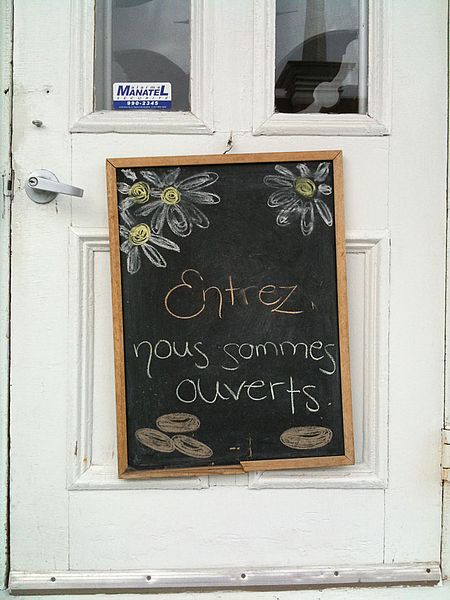 MANATEL
990-2345
Entrez,
nous sommes
ouverts.